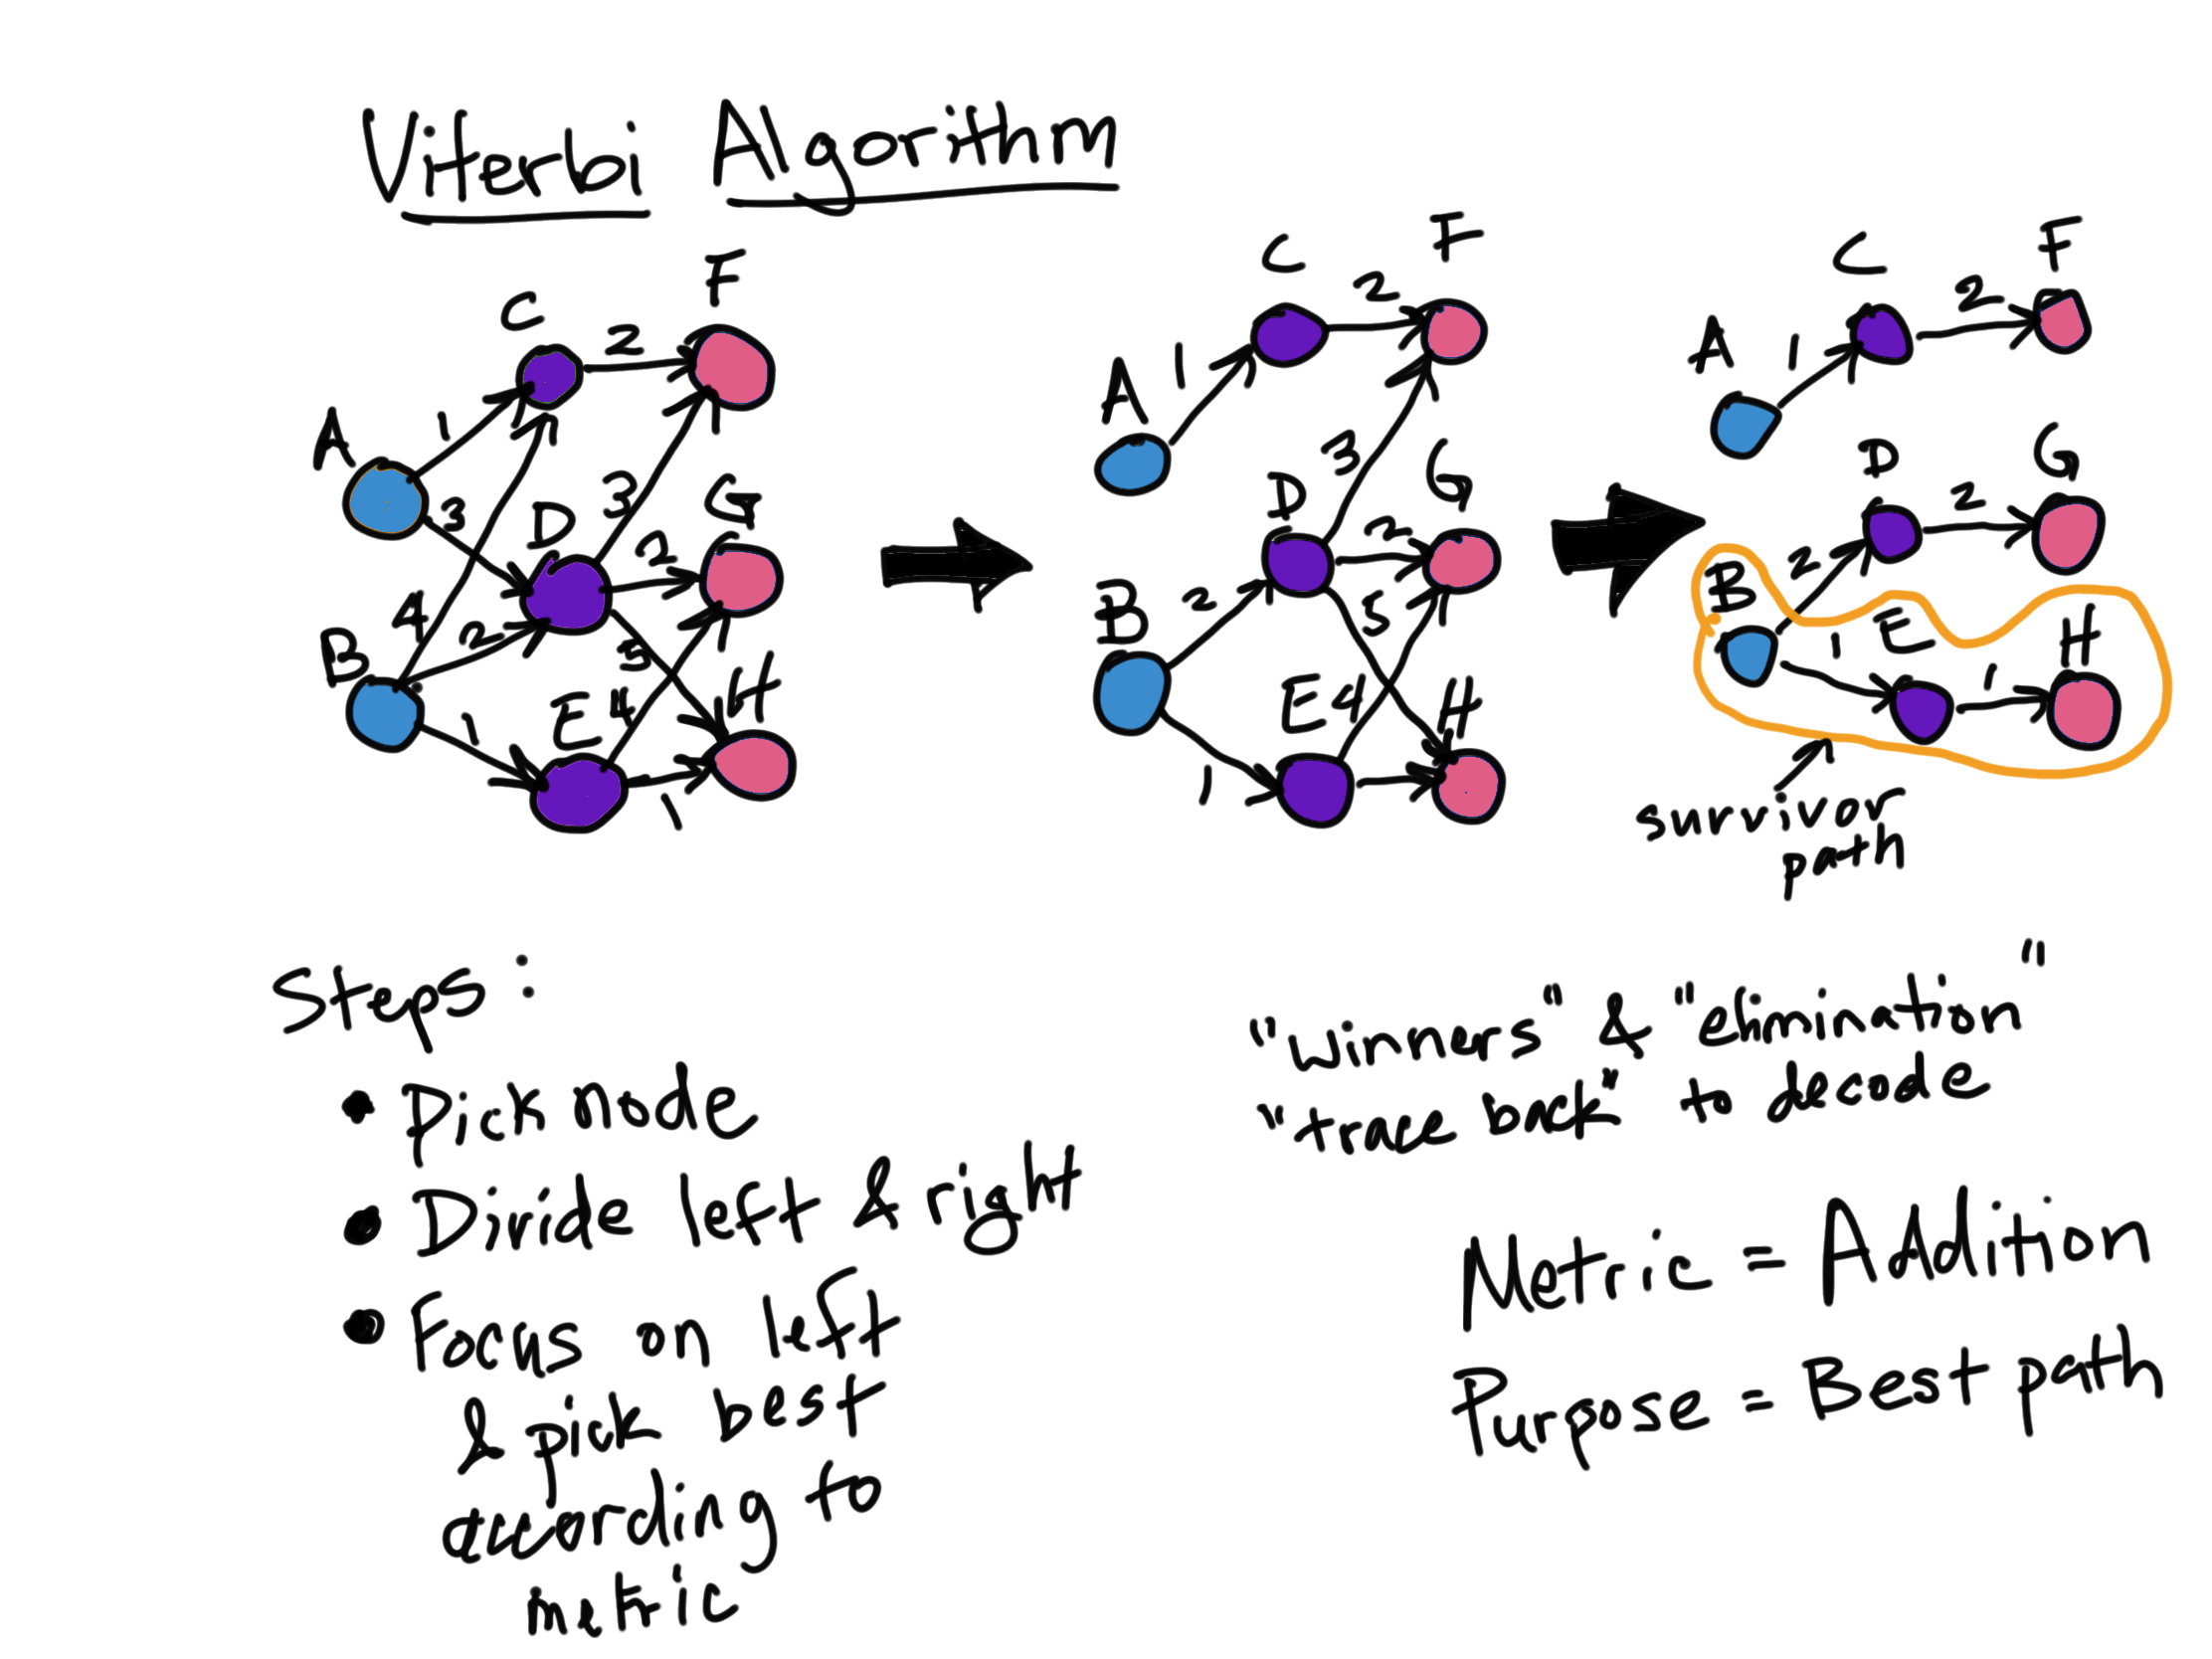 Viterbi Algorithm
A
B
C
D
E
F
G
H
1
3
4
2
1
2
3
2
5
4
1
A
B
C
D
E
F
G
H
1
2
1
2
3
2
5
4
A
B
C
D
E
F
G
H
1
2
2
2
1
1
survivor
path
Steps:
• Pick node
• Divide left & right
• Focus on left
& pick best
according to
metric
"winners" & "elimination"
"trace back" to decode
Metric = Addition
Purpose = Best path